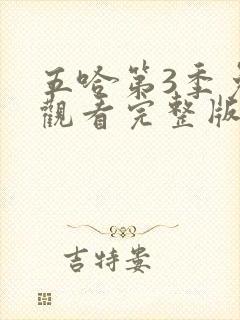 五哈第3季
觀看完整版
吉特婁